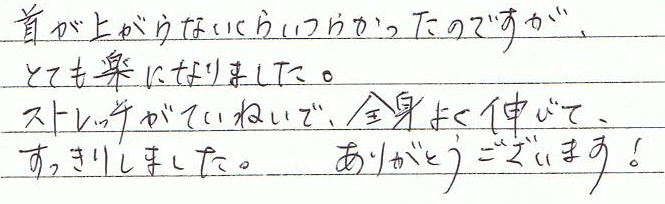 首が上がらないくらいつらかったのですが、
とても楽になりました。
ストレッチがていねいで、全身よく伸びて、
すっきりしました。 ありがとうございます！